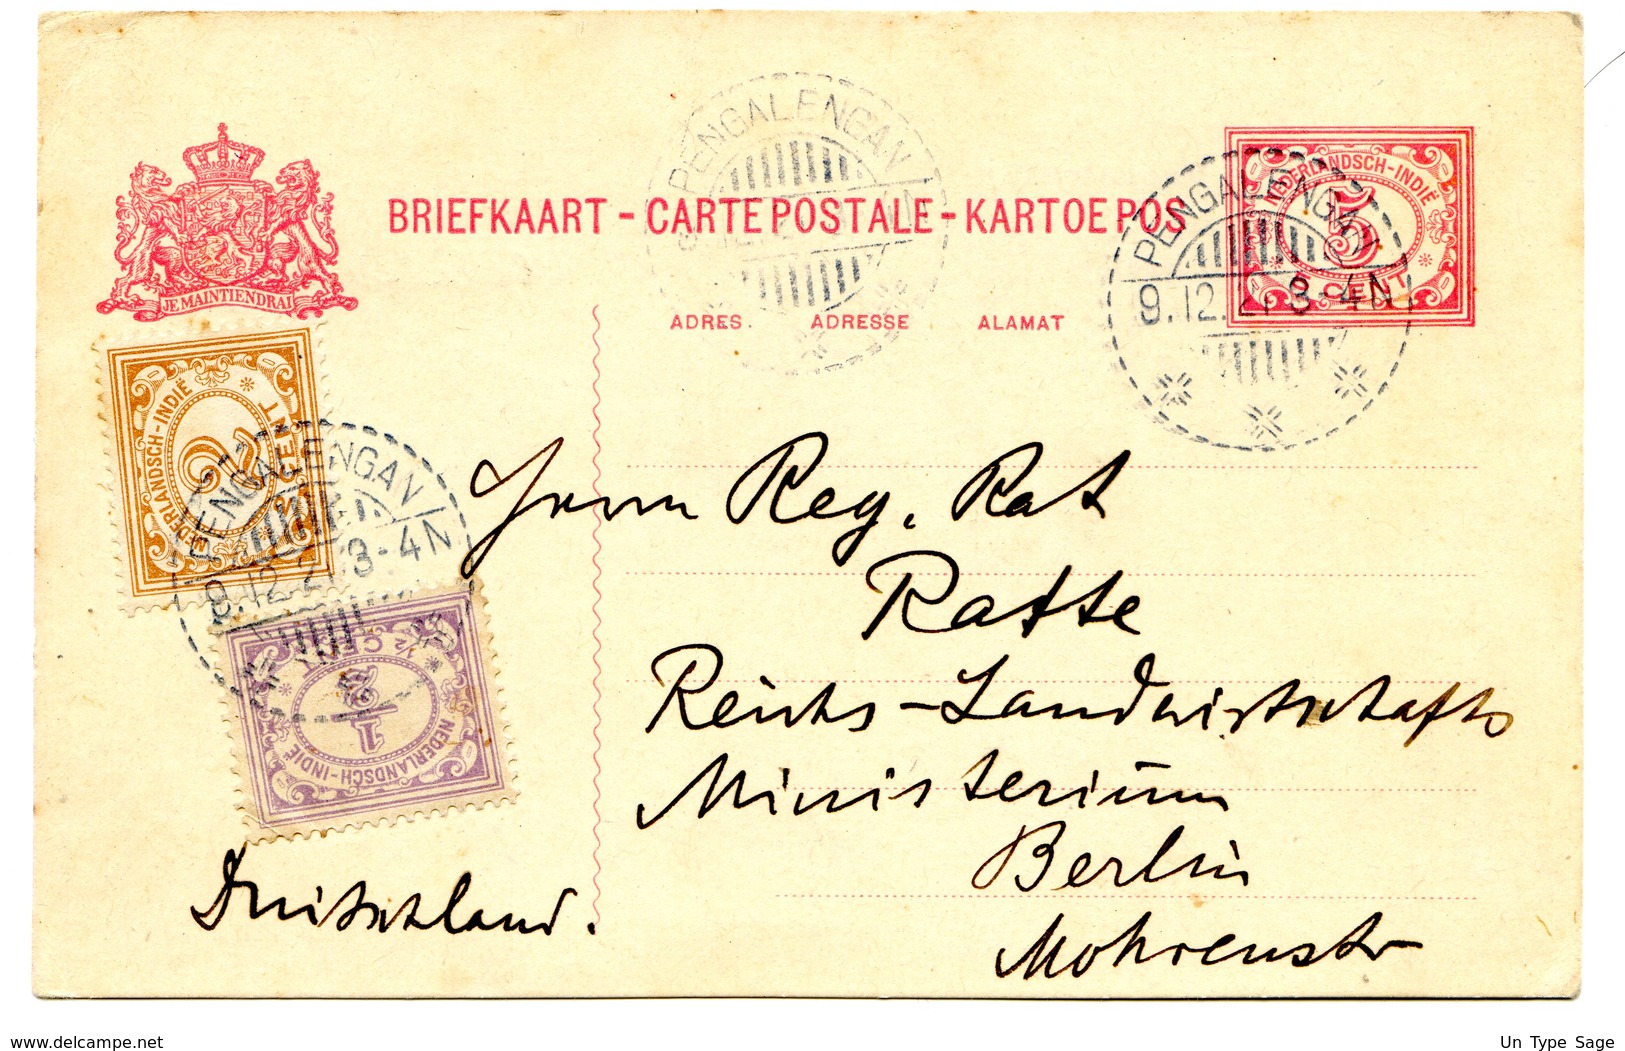 BRIEFKAART - CARTE POSTALE - KARTOE POS
JE MAINTIENDRAI
ADRES. ADRESSE ALAMAT
NEDERLANDSCH-INDIË
5
CENT
PENGALENGAN
9.12.21 3-4N
PENGALENGAN
NEDERLANDSCH-INDIË
2
CENT
PENGALENGAN
9.12.21 3-4N
½ CENT
½
NEDERLANDSCH-INDIË
Herrn Reg. Rat
Ratte
Reichs-Landwirtschafts
Ministerium
Berlin
Mohrenstr
Deutschland.
www.delcampe.net
Un Type Sage